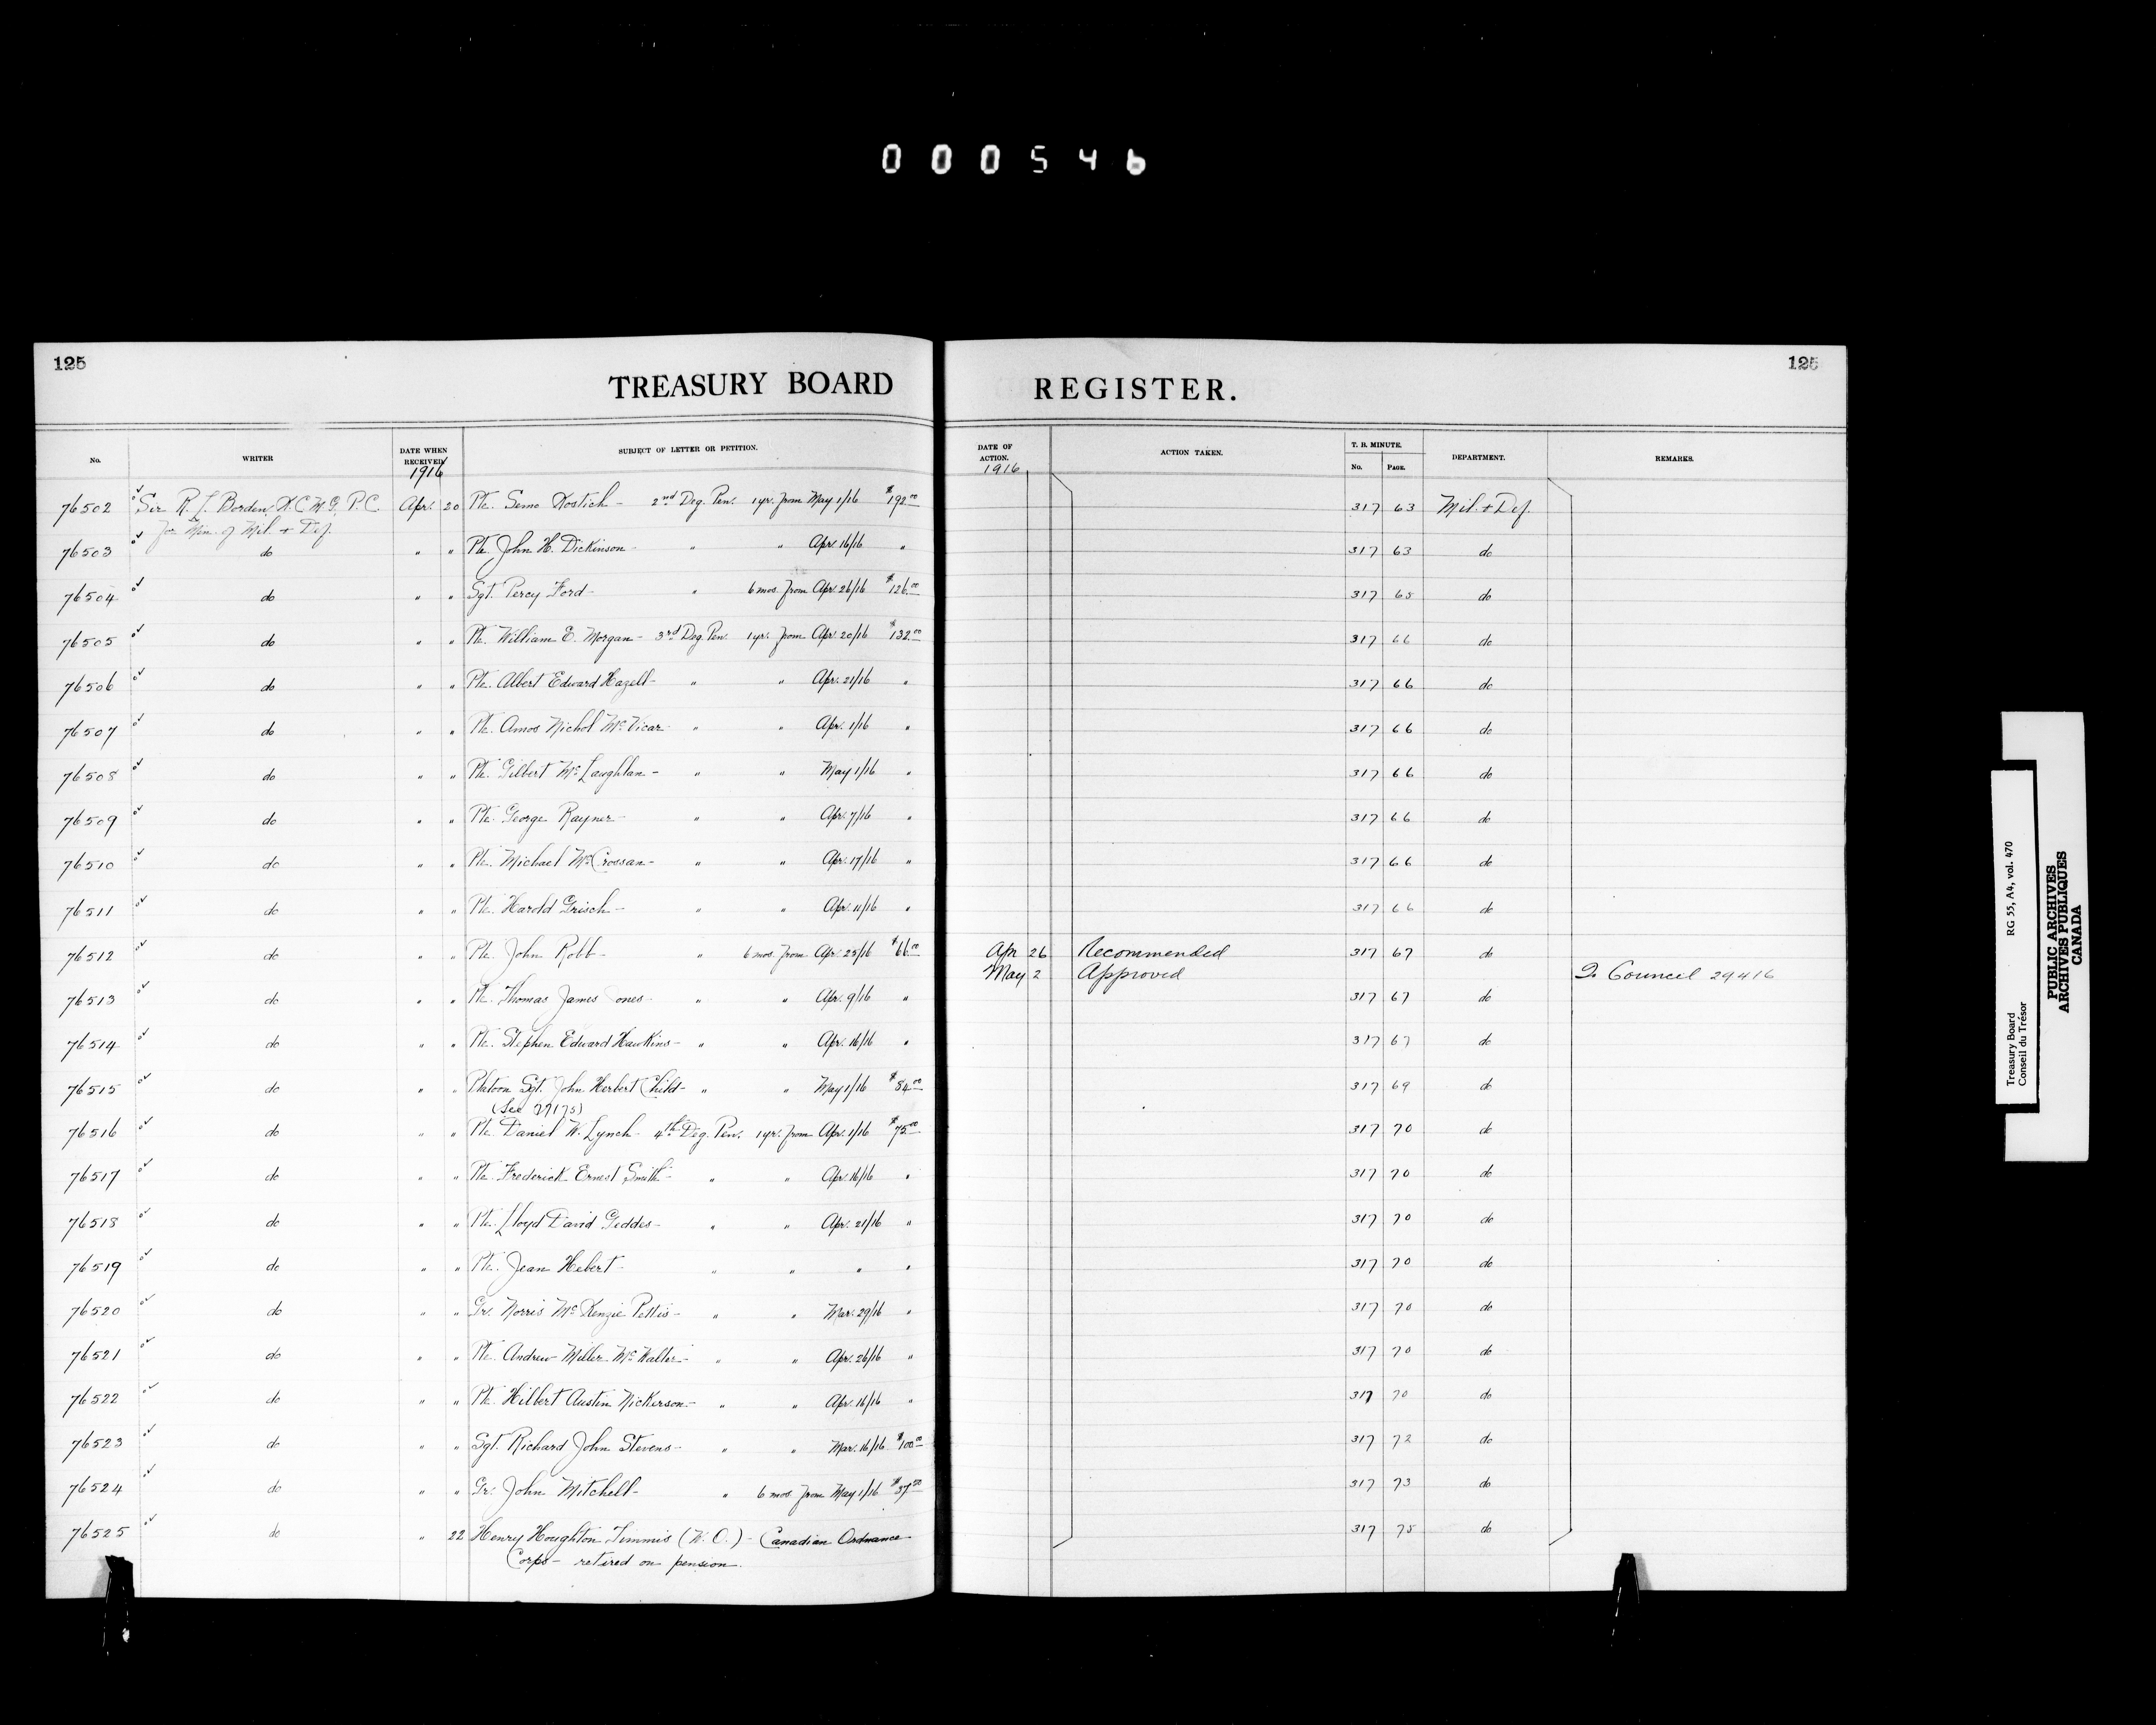 000546
125
125
TREASURY BOARD REGISTER.
No. WRITER DATE WHEN RECEIVED SUBJECT OF LETTER OR PETITION. DATE OF ACTION. ACTION TAKEN. T. B. MINUTE. No. PAGE. DEPARTMENT. REMARKS.
1916 1916
76502 Sir R. L. Borden, K.C.M.G. P.C. Apr. 20 Pte. Semo Kostich - 2nd Deg. Pen. 1 yr. from May 1/16 $192.00 317 63 Mil. & Def.
for Min. of Mil. & Def.
76503 do " " Pte. John H. Dickinson - " " Apr. 16/16 " 317 63 do
76504 do " " Sgt. Percy Ford - " 6 mos. from Apr. 26/16 $126.00 317 65 do
76505 do " " Pte. William E. Morgan - 3rd Deg. Pen. 1 yr. from Apr. 20/16 $132.00 317 66 do
76506 do " " Pte. Albert Edward Hazell - " " Apr. 21/16 " 317 66 do
76507 do " " Pte. Amos Nichol McVicar - " " Apr. 1/16 " 317 66 do
76508 do " " Pte. Gilbert McLaughlan - " " May 1/16 " 317 66 do
76509 do " " Pte. George Rayner - " " Apr. 7/16 " 317 66 do
76510 do " " Pte. Michael McCrossan - " " Apr. 17/16 " 317 66 do
76511 do " " Pte. Harold Grisch - " " Apr. 11/16 " 317 66 do
76512 do " " Pte. John Robb - " 6 mos. from Apr. 25/16 $66.00 Apr 26 Recommended 317 67 do
May 2 Approved Council 29416
76513 do " " Pte. Thomas James ones - " " Apr. 9/16 " 317 67 do
76514 do " " Pte. Stephen Edward Hawkins - " " Apr. 16/16 " 317 67 do
76515 do " " Platoon Sgt. John Herbert Child - " " May 1/16 $84.00 317 69 do
(See 77175)
76516 do " " Pte. Daniel W. Lynch - 4th Deg. Pen. 1 yr. from Apr. 1/16 $75.00 317 70 do
76517 do " " Pte. Frederick Ernest Smith - " " Apr. 16/16 " 317 70 do
76518 do " " Pte. Lloyd David Geddes - " " Apr. 21/16 " 317 70 do
76519 do " " Pte. Jean Hebert - " " " " 317 70 do
76520 do " " Gr. Norris McKenzie Pettis - " " Mar. 29/16 " 317 70 do
76521 do " " Pte. Andrew Miller McWalter - " " Apr. 26/16 " 317 70 do
76522 do " " Pte. Hilbert Austin Nickerson - " " Apr. 16/16 " 317 70 do
76523 do " " Sgt. Richard John Stevens - " " Mar. 16/16 $100.00 317 72 do
76524 do " " Gr. John Mitchell - " 6 mos. from May 1/16 $37.50 317 73 do
76525 do " 22 Henry Houghton Timmis (W.O.) - Canadian Ordnance 317 75 do
Corps - retired on pension.
Treasury Board RG 55, A4, vol. 470
Conseil du Trésor
PUBLIC ARCHIVES
ARCHIVES PUBLIQUES
CANADA